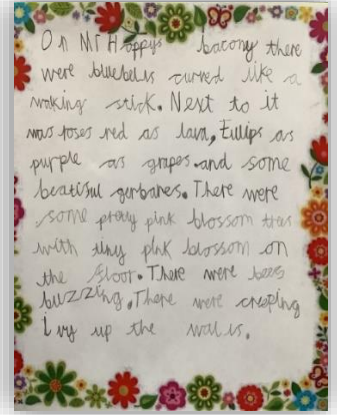 On Mr Hoppys bacony there
were bluebells curved like a
waking stick. Next to it
was roses red as lava, Eulips as
purple as grapes and some
beatiful gerbanes. There were
some pretty pink blossom trees
with tiny pink blossom on
the floor. There were bees
buzzing. There were creeping
ivy up the walls.